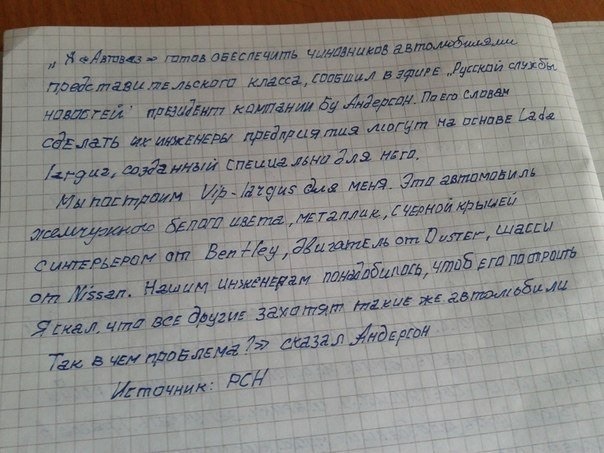 „ Я «Автоваз» готов обеспечить чиновников автомобилями
представительского класса, сообщил в эфире „Русской службы
новостей" президент компании Бу Андерсон. По его словам
сделать их инженеры предприятия могут на основе Lada
largus, созданный специально для него.
Мы построим Vip-largus для меня. Это автомобиль
жемчужного белого цвета, металлик, с черной крышей
с интерьером от Bentley, двигатель от Duster, шасси
от Nissan. Нашим инженерам понадобилось, чтоб его построить
Я скал, что все другие захотят такие же автомобили
Так в чем проблема?» сказал Андерсон
Источник: РСН